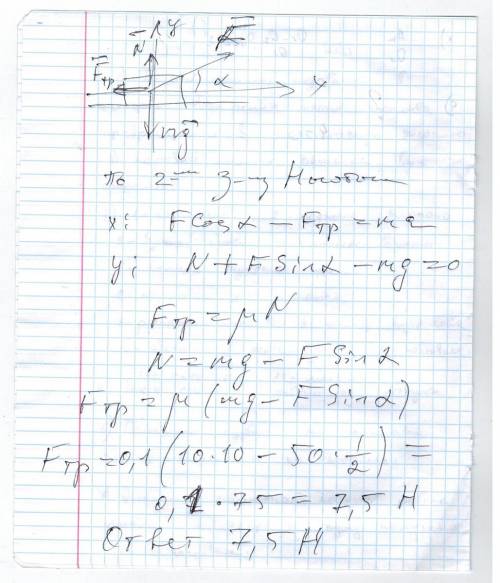 N y F
Fтр α x
mg
По 2му З-ну Ньютона
x: F Cos α − Fтр = ma
y: N + F Sin α − mg = 0
Fтр = μN
N = mg − F Sin α
Fтр = μ (mg − F Sin α)
Fтр = 0,1 (10·10 − 50·1/2) =
0,1·75 = 7,5 Н
Ответ 7,5 Н